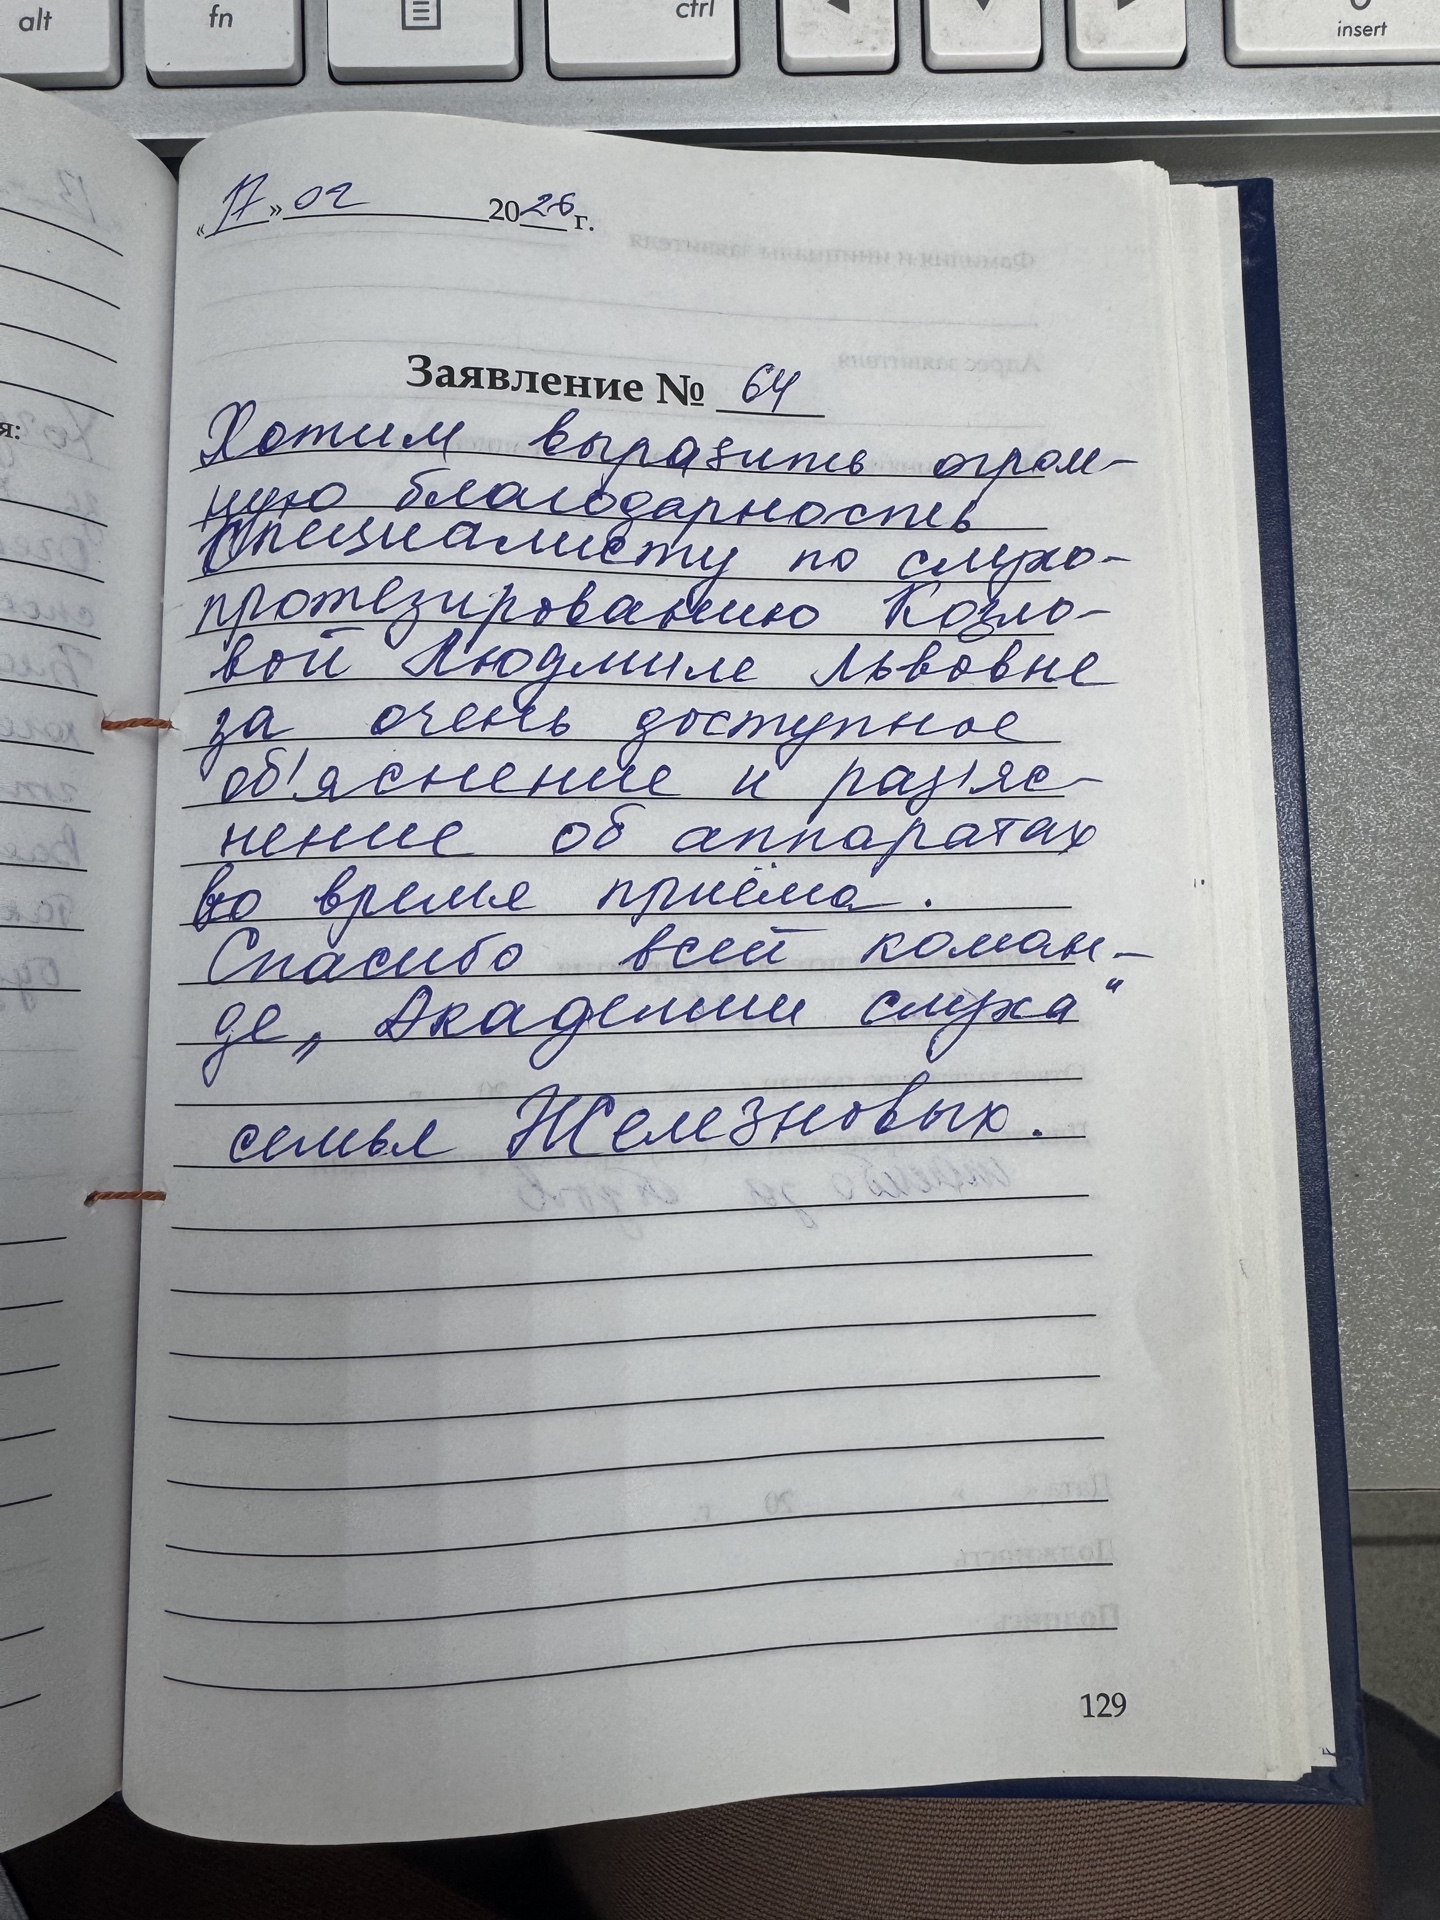 alt
fn
ctrl
insert
«17» 02 2026 г.
Заявление № 64
Хотим выразить огром-
ную благодарность
специалисту по слухо-
протезированию Козло-
вой Людмиле Львовне
за очень доступное
об'яснение и раз'яс-
нение об аппаратах
во время приёма.
Спасибо всей коман-
де „Академии слуха"
семья Железновых.
129
я: